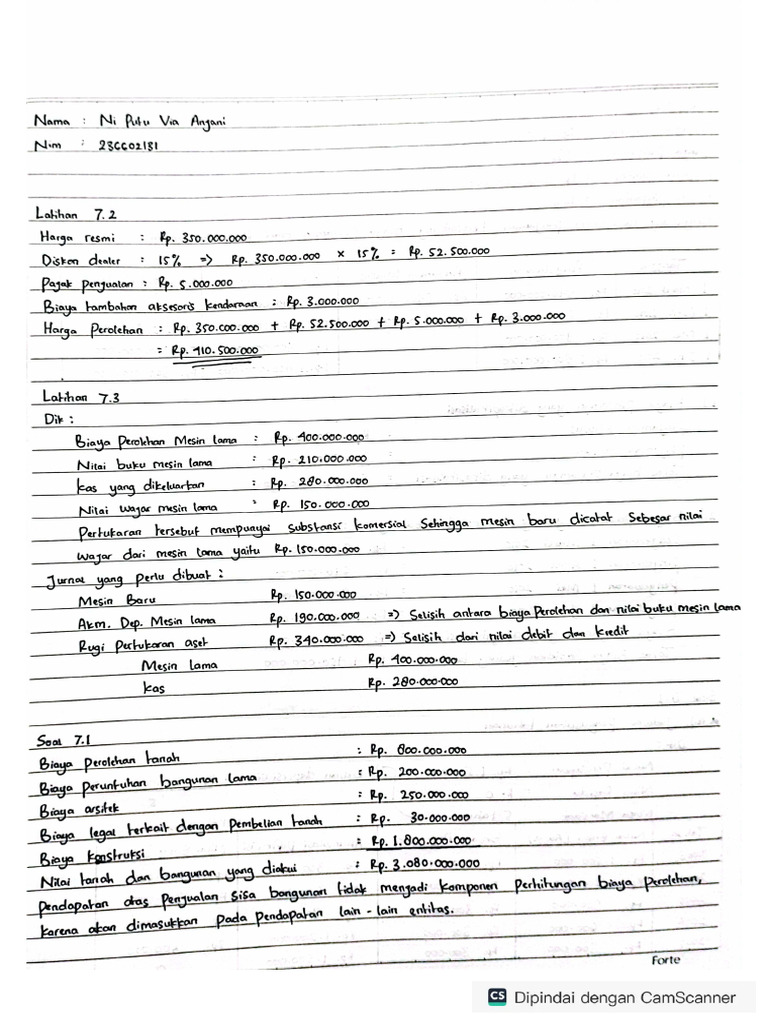 Nama : Ni Putu Via Anjani
Nim : 236602181
Latihan 7.2
Harga resmi : Rp. 350.000.000
Diskon dealer : 15% => Rp. 350.000.000 x 15% = Rp. 52.500.000
Pajak penjualan : Rp. 5.000.000
Biaya tambahan aksesoris kendaraan : Rp. 3.000.000
Harga Perolehan : Rp. 350.000.000 + Rp. 52.500.000 + Rp. 5.000.000 + Rp. 3.000.000
= Rp. 410.500.000
Latihan 7.3
Dik :
Biaya Perolehan Mesin lama : Rp. 400.000.000
Nilai buku mesin lama : Rp. 210.000.000
Kas yang dikeluarkan : Rp. 280.000.000
Nilai wajar mesin lama : Rp. 150.000.000
Pertukaran tersebut mempunyai substansi komersial Sehingga mesin baru dicatat Sebesar nilai
wajar dari mesin lama yaitu Rp. 150.000.000
Jurnal yang perlu dibuat :
Mesin Baru Rp. 150.000.000
Akm. Dep. Mesin lama Rp. 190.000.000 => Selisih antara biaya Perolehan dan nilai buku mesin lama
Rugi Pertukaran aset Rp. 340.000.000 => Selisih dari nilai debit dan kredit
Mesin lama Rp. 400.000.000
Kas Rp. 280.000.000
Soal 7.1
Biaya Perolehan tanah : Rp. 800.000.000
Biaya Peruntuhan bangunan lama : Rp. 200.000.000
Biaya arsitek : Rp. 250.000.000
Biaya legal terkait dengan Pembelian tanah : Rp. 30.000.000
Biaya Konstruksi : Rp. 1.800.000.000
Nilai tanah dan bangunan yang diakui : Rp. 3.080.000.000
Pendapatan atas Penjualan sisa bangunan tidak menjadi komponen perhitungan biaya perolehan,
karena akan dimasukkan pada pendapatan lain - lain entitas.
Forte
CS Dipindai dengan CamScanner